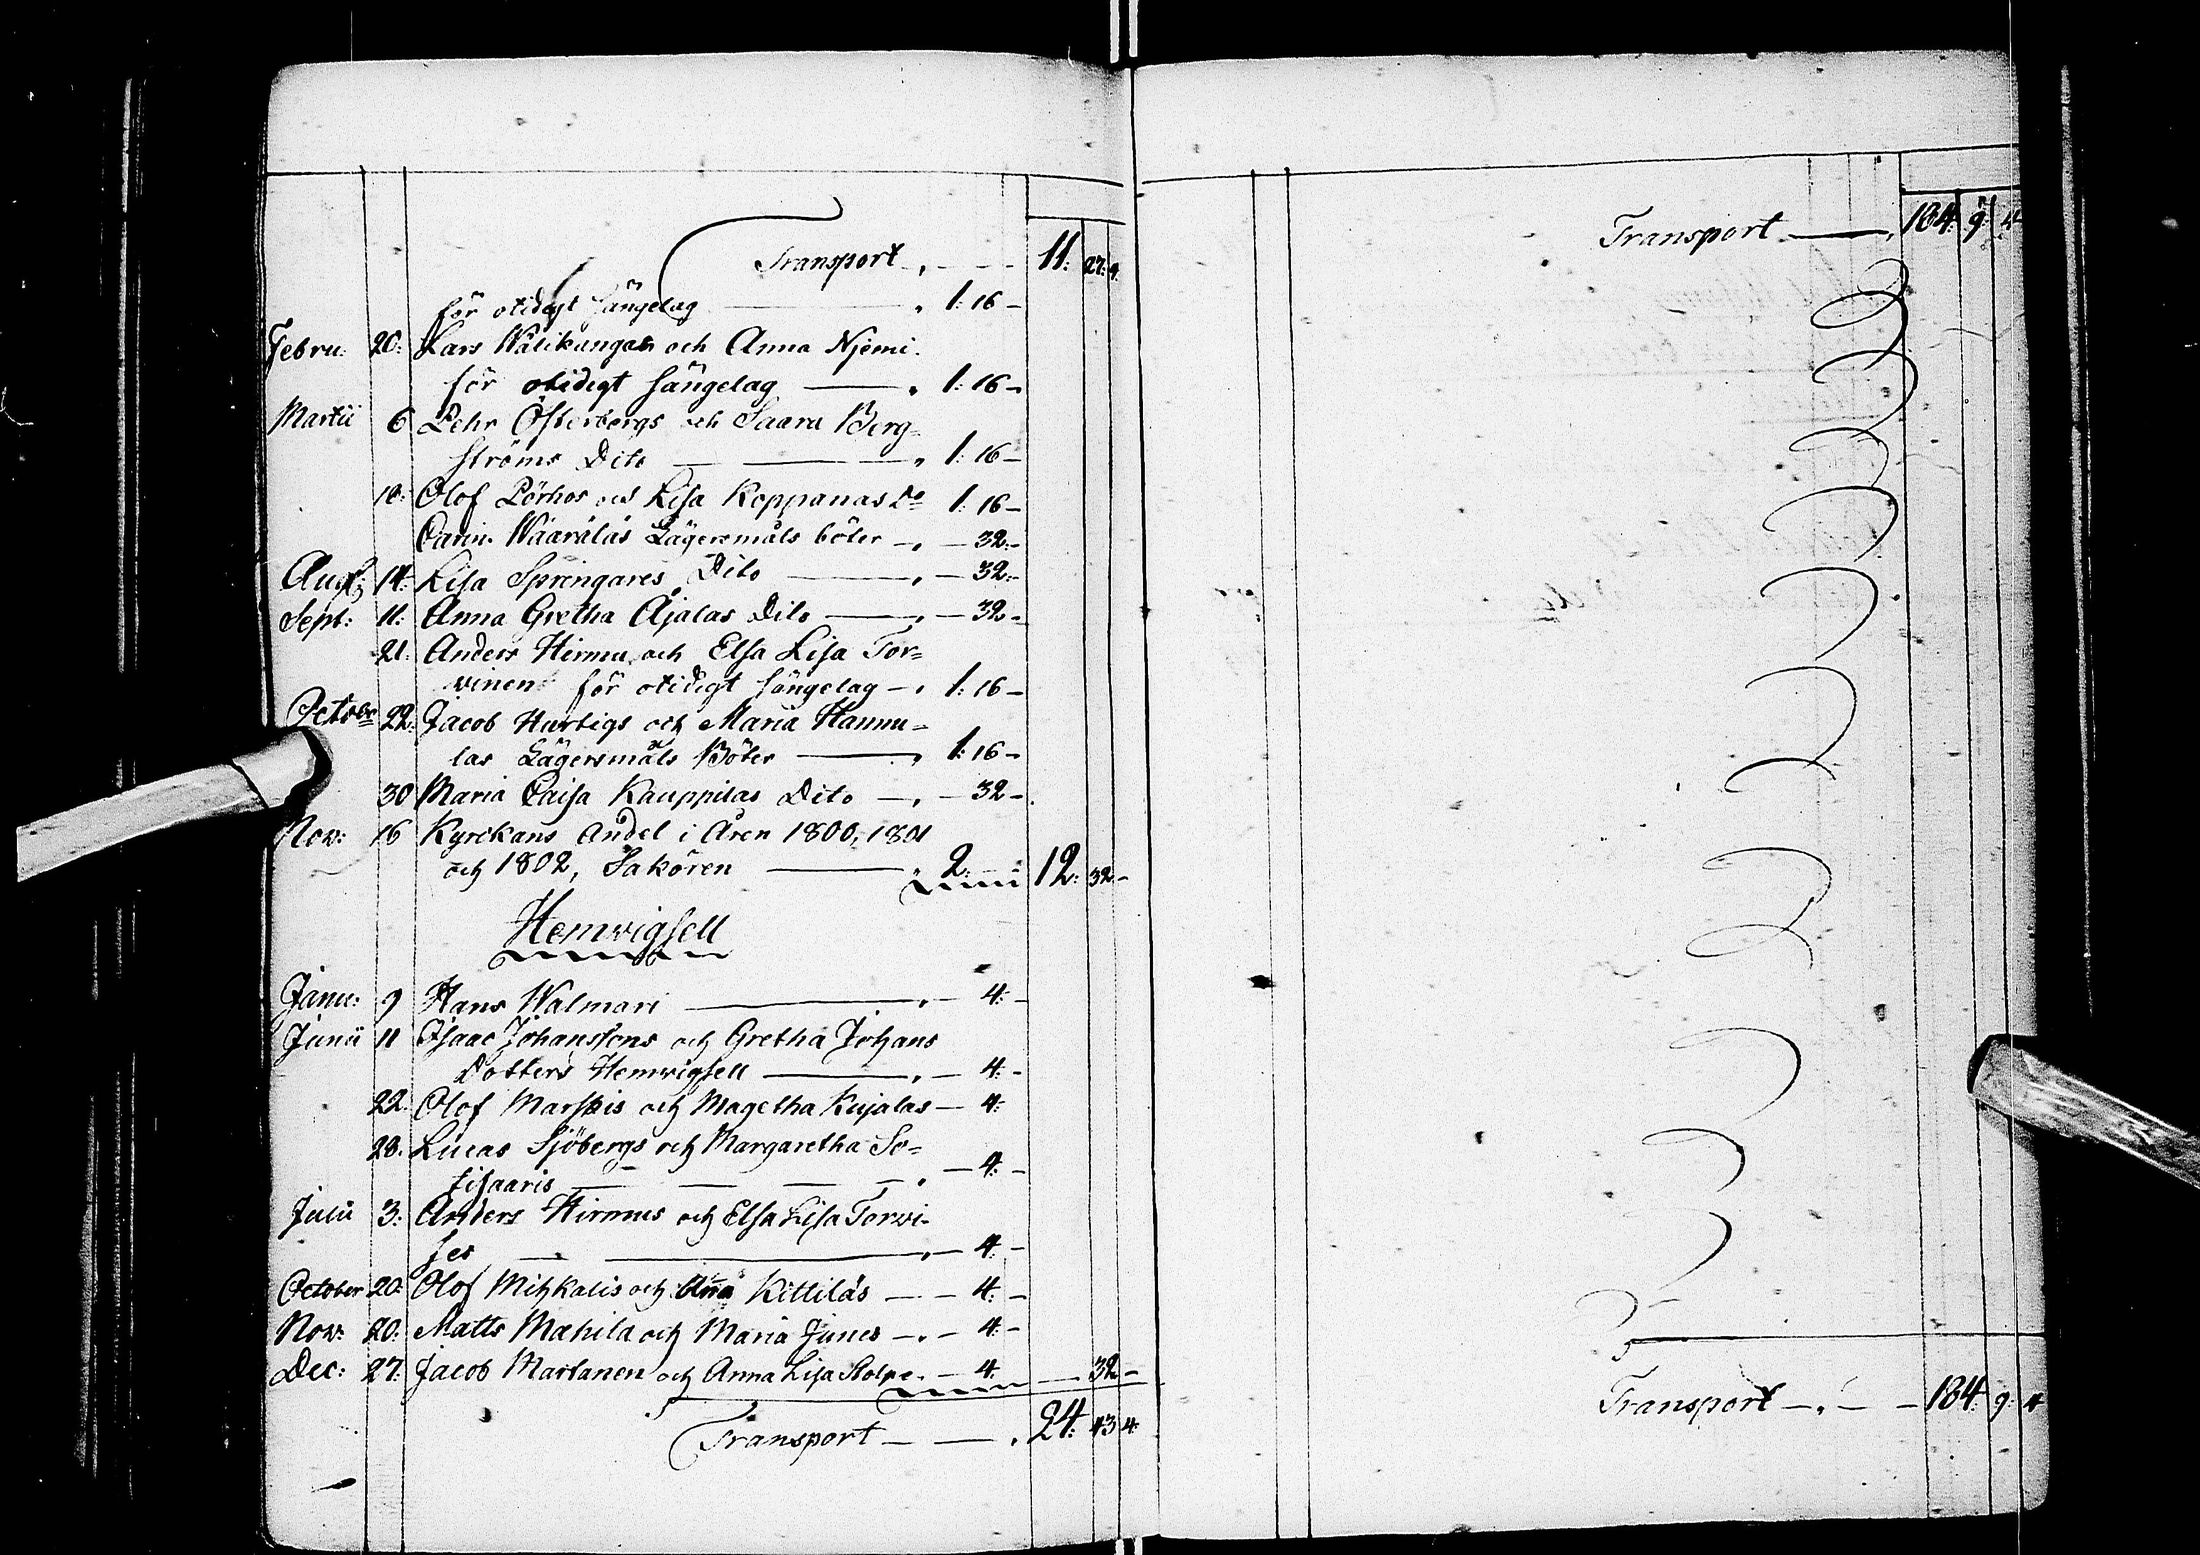 Transport 11: 27: 4
för otidigt Sängelag 1: 16 –
Febru: 20: Lars Wälikangas och Anna Njemi.
för otidigt Sängelag 1: 16 –
Martii 6 Pehr Österbergs och Saara Berg-
ströms Dito 1: 16 –
10: Olof Pörhos och Lisa Koppanas Do 1: 16 –
Carin Wäärälas Lägersmåls böter – 32: –
Aug: 14: Lisa Springares Dito – 32: –
Sept: 11: Anna Gretha Ajalas Dito – 32 –
21: Anders Hirmu och Elsa Lisa Tor=
winens för otidigt Sängelag 1: 16 –
October 22: Jacob Hurtigs och Maria Hannu=
las Lägersmåls Böter 1: 16 –
30 Maria Caisa Kauppilas Dito – 32 –
Nov: 16 Kyrckans Andel i Åren 1800, 1801
och 1802, Sakören 2: – 12: 32 –
Hemvigsell
Janu: 9 Hans Walmari – 4: –
Junii 11 Isaac Johanssons och Gretha Johans
Dotters Hemvigsell – 4: –
22: Olof Marskis och Magetha Kujalas – 4:
28. Lucas Sjöbergs och Margaretha So=
tisaaris – 4: –
Julii 3: Anders Hirmus och Elsa Lisa Torwi-
ses – 4: –
October 20: Olof Mihkalis och Anna Kittiläs – 4: –
Nov: 20: Matts Mathila och Maria Junes – 4: –
Dec: 27: Jacob Martanen och Anna Lisa Stolpe – 4: – 32 –
Transport 24: 43 4:
Transport 184: 9: 4
Transport 184: 9: 4